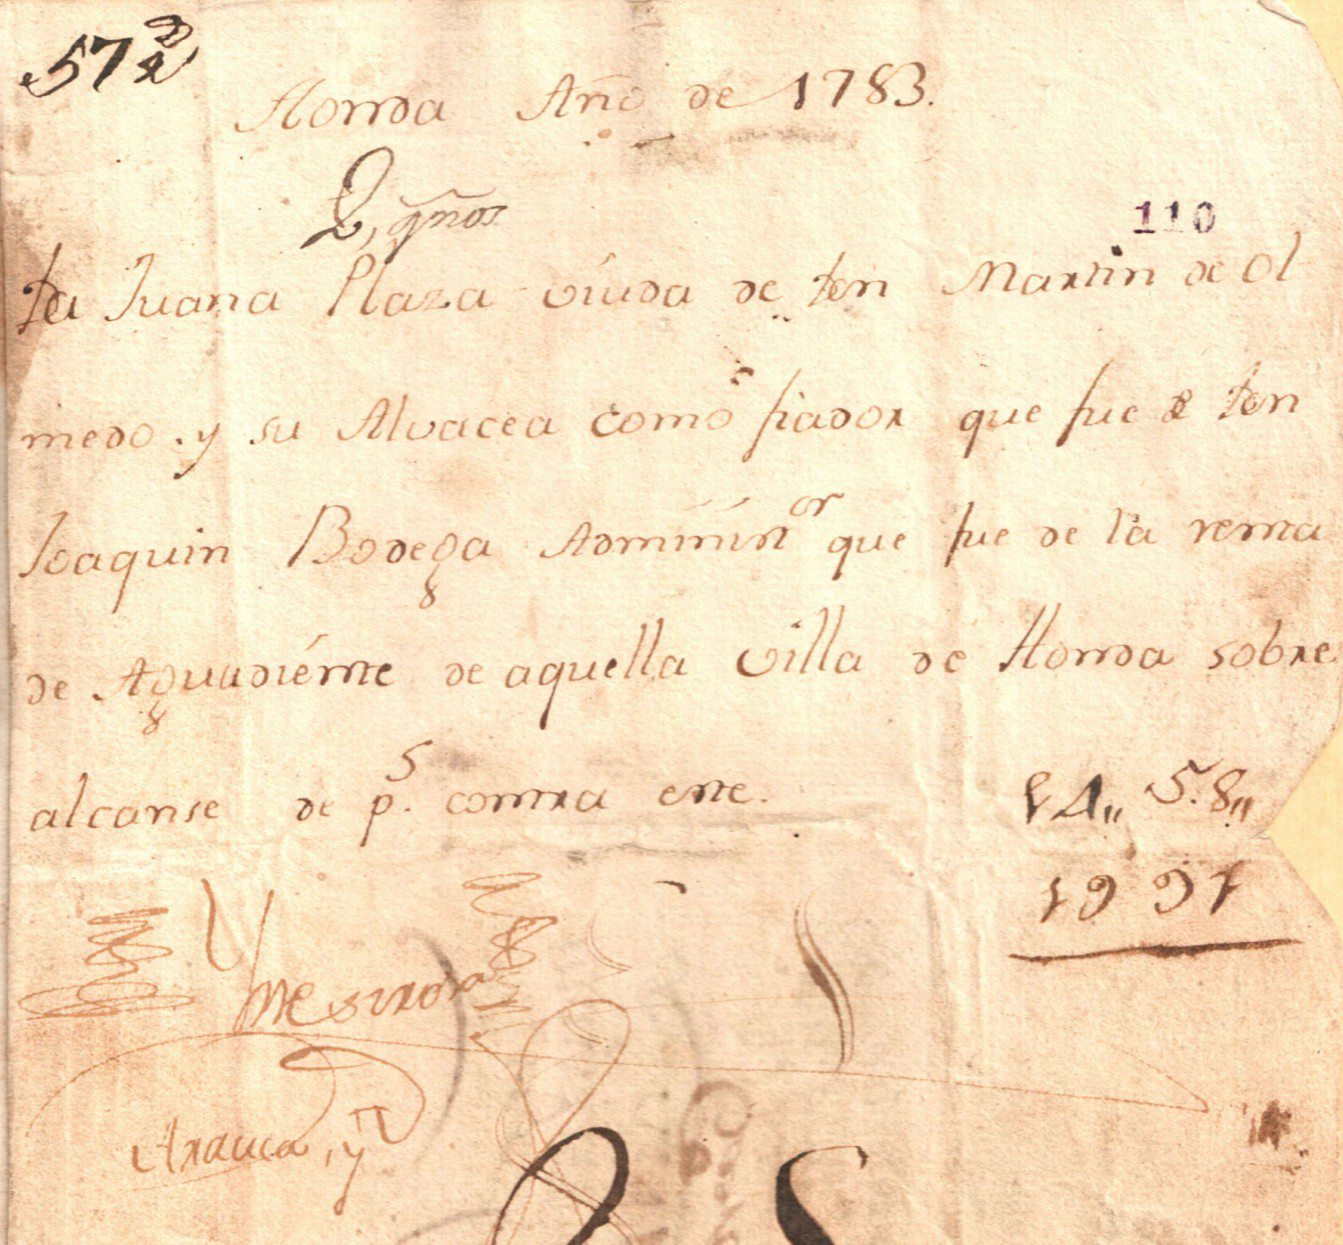 572
Honda Año de 1783.
110
Da Juana Plaza viuda de Don Martin de Ol
medo. y su Alvacea como fiador que fue de Don
Joaquin Bodega Administor que fue de la renta
de Aguardiente de aquella villa de Honda sobre
alcanse de ps. contra este.
14,, 5.8,,
1991
Arauca, y